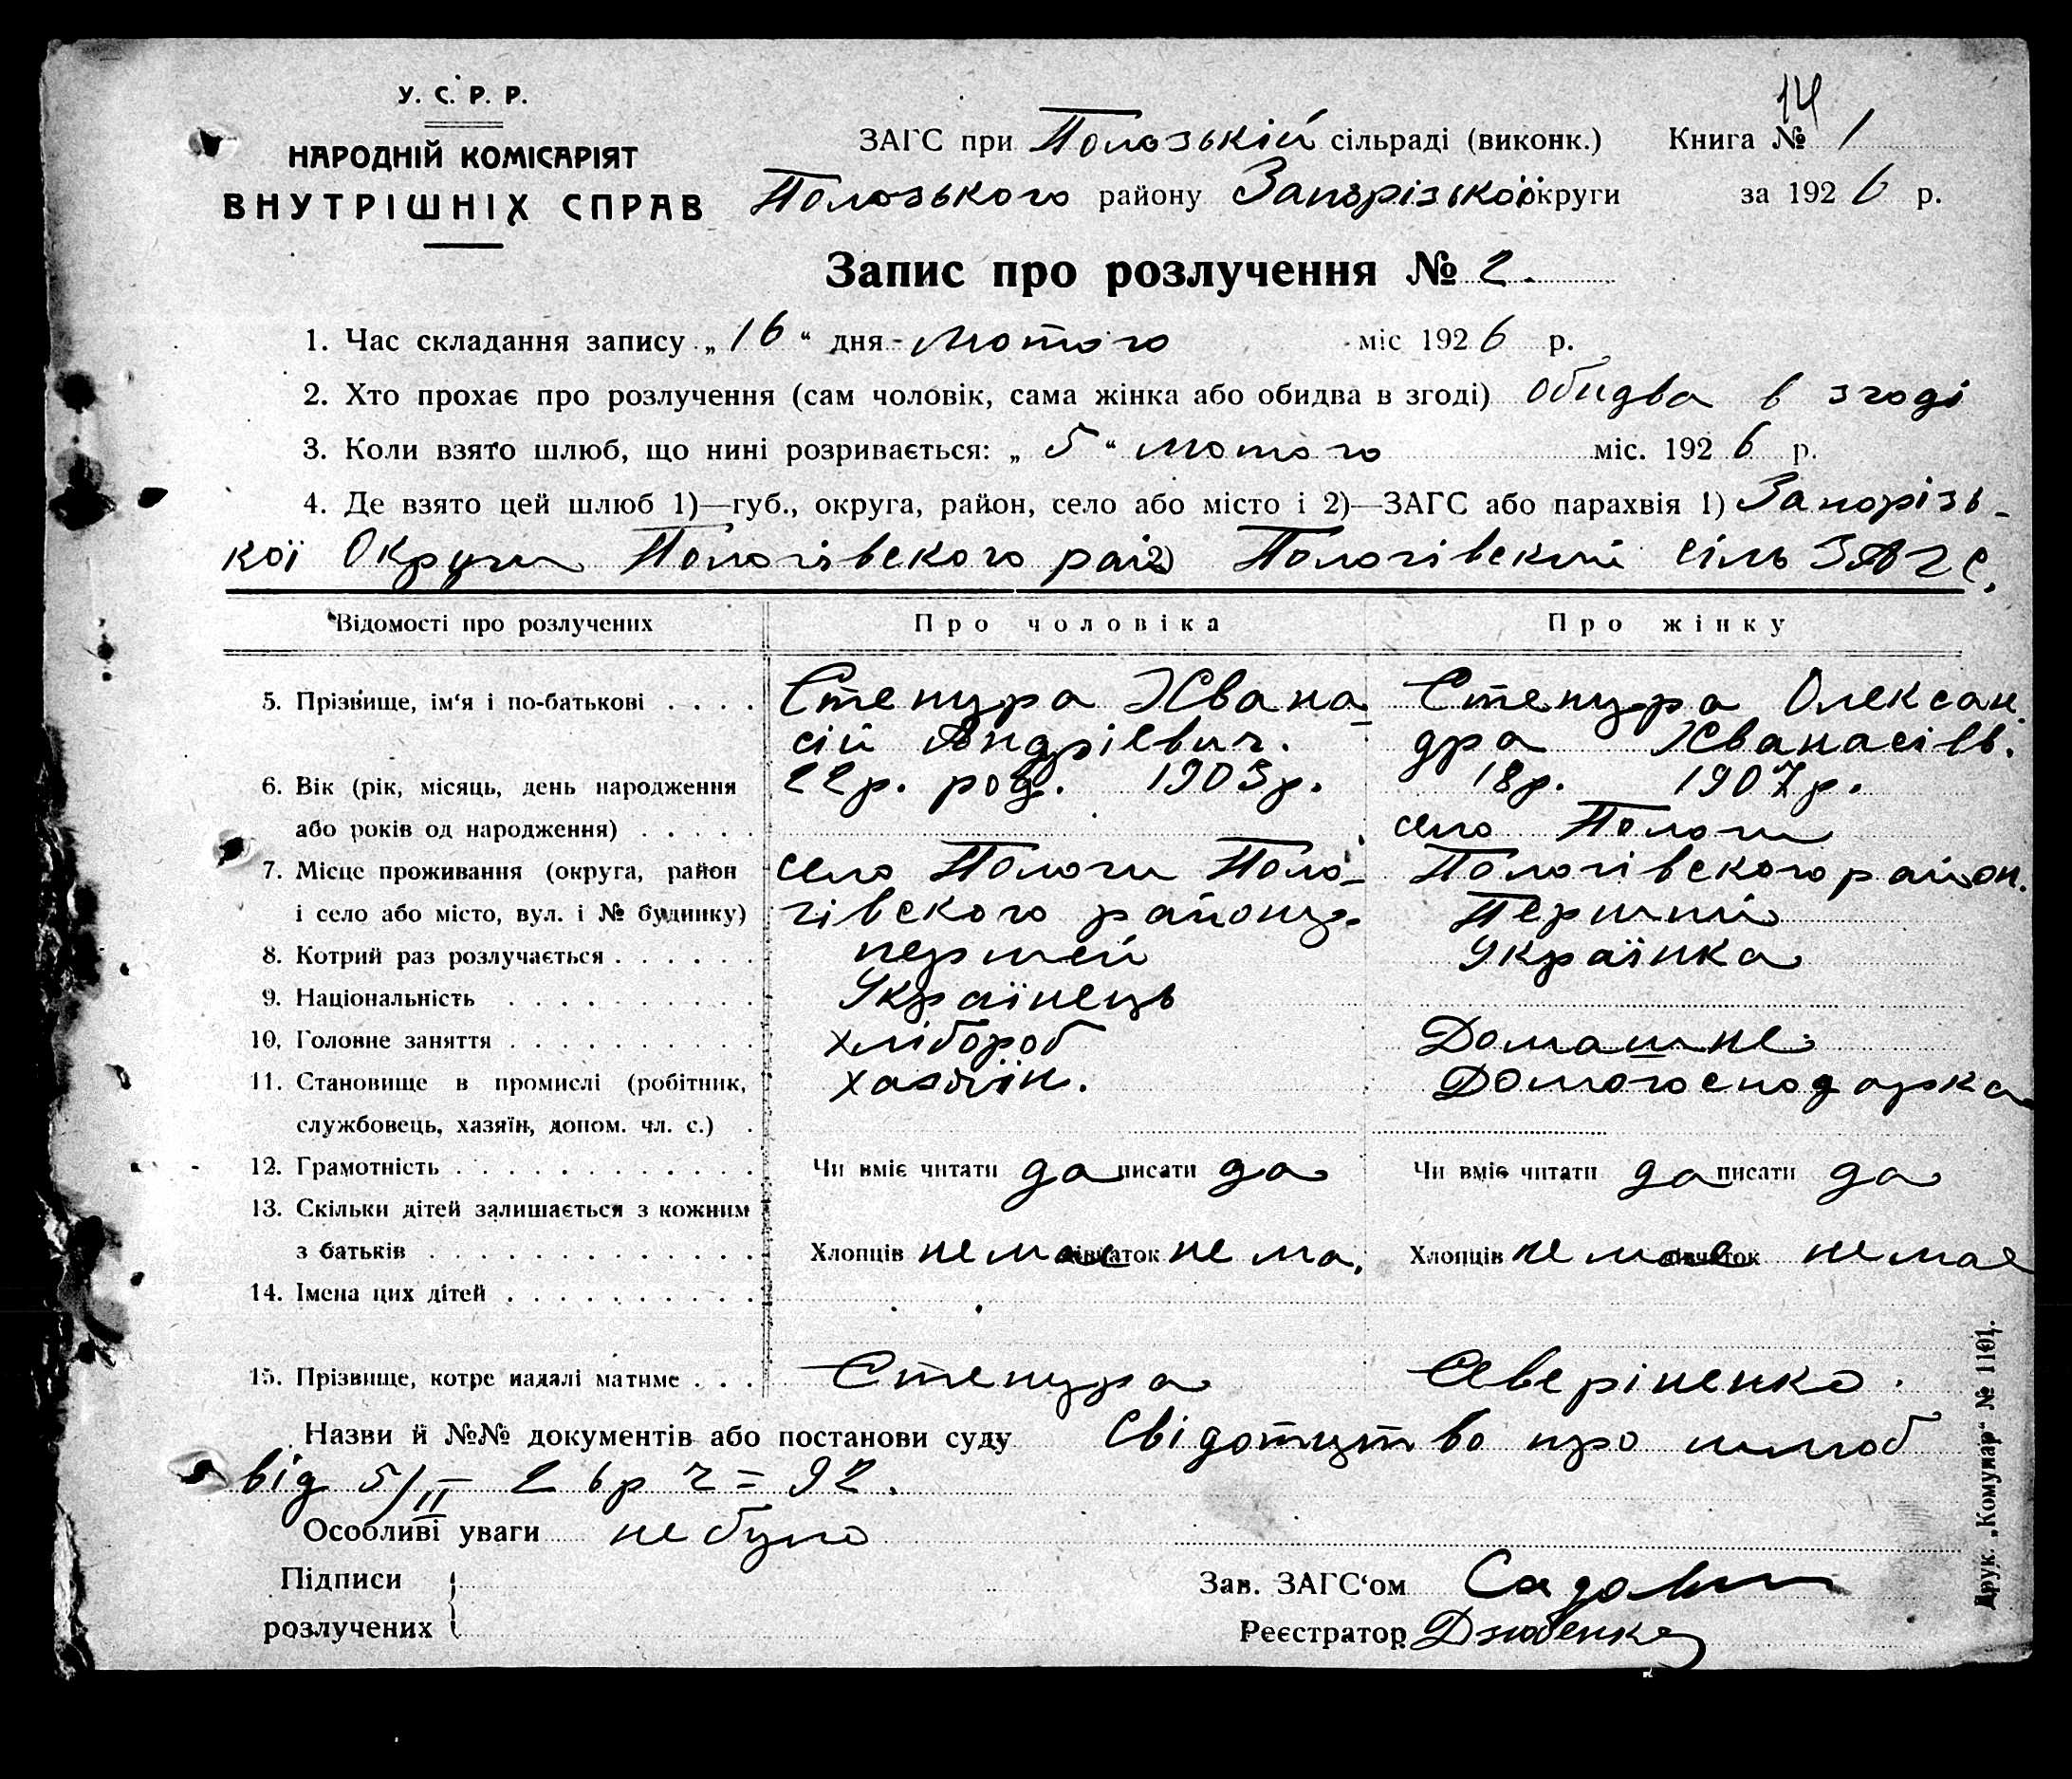 14
У. С. Р. Р.
НАРОДНІЙ КОМІСАРІЯТ
ВНУТРІШНІХ СПРАВ
ЗАГС при Полозькій сільраді (виконк.) Книга № 1
Полозького району Запорізької округи за 1926 р.
Запис про розлучення № 2.
1. Час складання запису „16“ дня Лютого міс 1926 р.
2. Хто прохає про розлучення (сам чоловік, сама жінка або обидва в згоді) обидва в згоді
3. Коли взято шлюб, що нині розривається: „5“ лютого міс. 1926 р.
4. Де взято цей шлюб 1)—губ., округа, район, село або місто і 2)—ЗАГС або парахвія 1) Запорізь-
кої Округи Пологівского рай 2) Пологівский сіль ЗАГС.
Відомості про розлучених Про чоловіка Про жінку
5. Прізвище, ім‘я і по-батькові . . . . Степура Хвана- Степура Олексан
сій Андрієвич. дра Хванасієв.
6. Вік (рік, місяць, день народження 22р. род. 1903р. 18р. 1907р.
або років од народження) . . . . . село Пологи
7. Місце проживання (округа, район село Пологи Поло- Пологівского район.
і село або місто, вул. і № будинку) гівского району. Перший
8. Котрий раз розлучається . . . . . . первей Українка
9. Національність . . . . . . . . . . Українець
10. Головне заняття . . . . . . . . . . хлібороб Домашнє
11. Становище в промислі (робітник, хазяїн. Домогосподарка
службовець, хазяїн, допом. чл. с.) .
12. Грамотність . . . . . . . . . . . . Чи вміє читати да писати да Чи вміє читати да писати да
13. Скільки дітей залишається з кожним
з батьків . . . . . . . . . . . . . Хлопців немає дівчаток нема. Хлопців немає дівчаток немає
14. Імена цих дітей . . . . . . . . . .
15. Прізвище, котре надалі матиме . . . Степура Северіненко.
Назви й №№ документів або постанови суду Свідотцтво про шлюб
від 5/II 26р ч = 92.
Особливі уваги не було
Підписи
розлучених
Зав. ЗАГС‘ом
Реєстратор Дзюбенко
Друк. „Комунар“ № 1101.